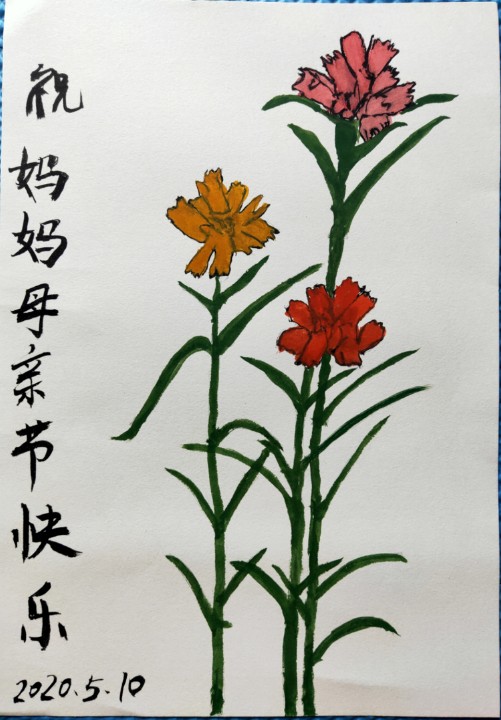 祝妈妈母亲节快乐
2020.5.10